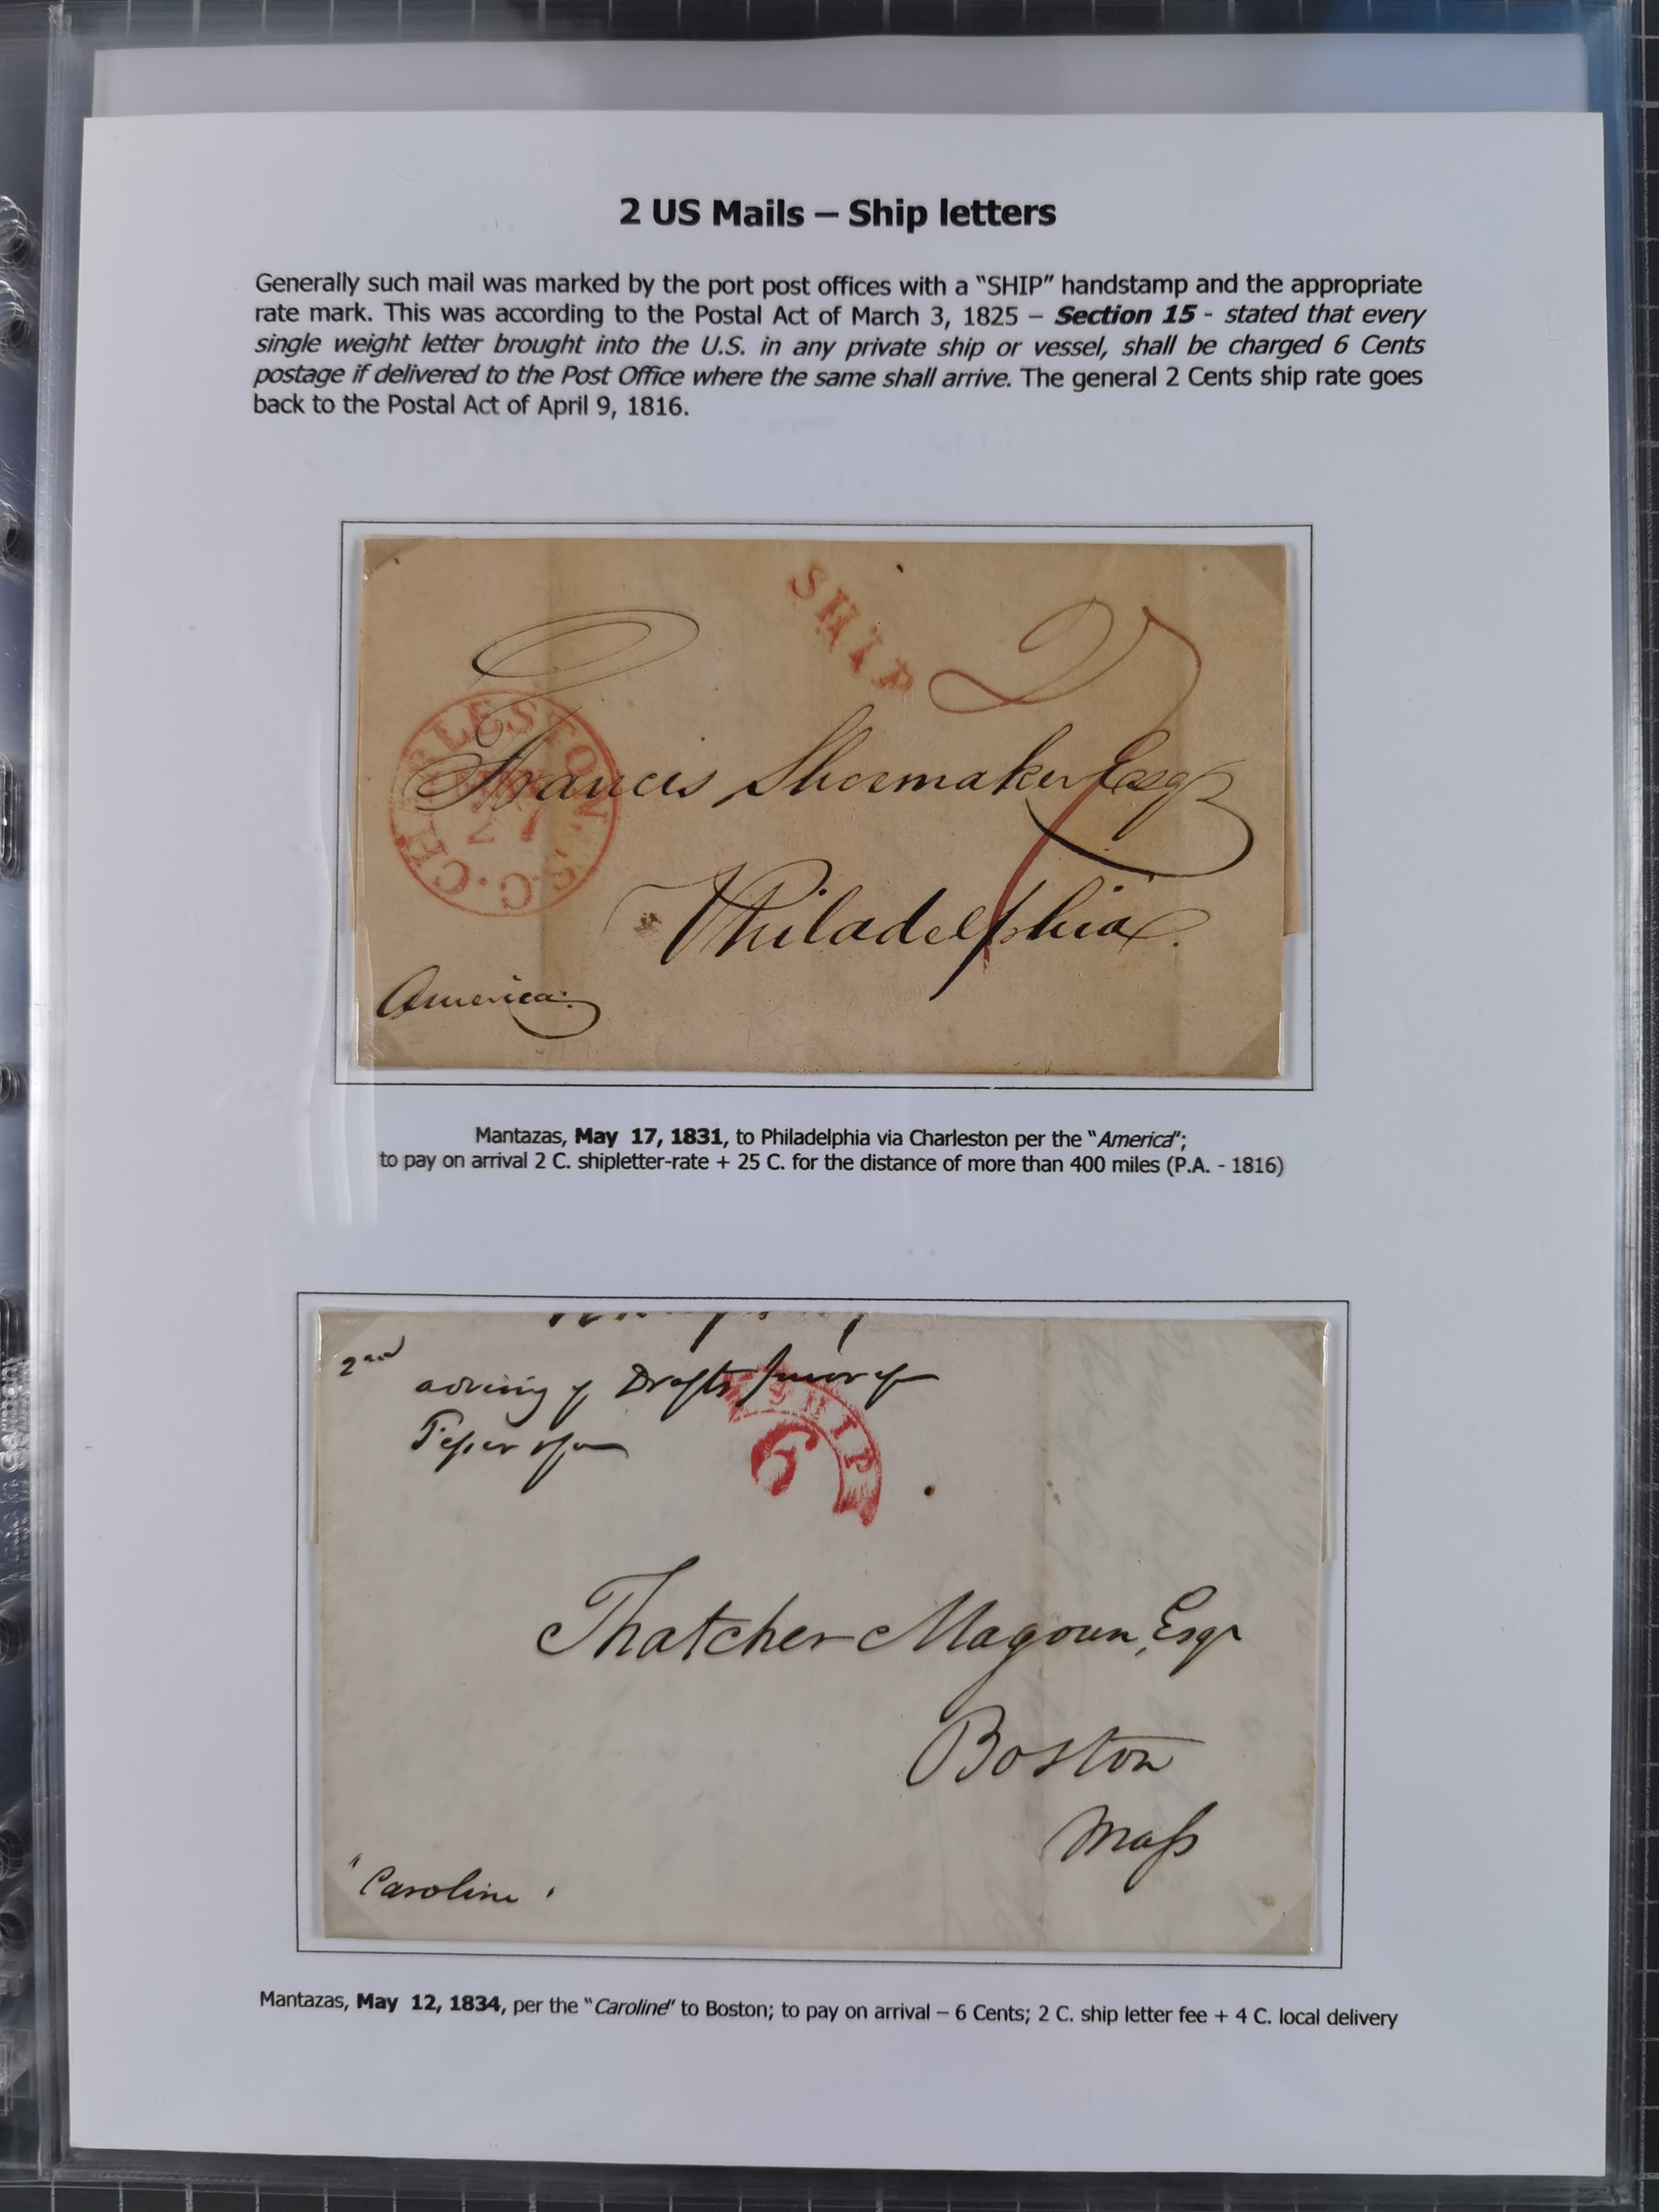 2 US Mails – Ship letters
Generally such mail was marked by the port post offices with a “SHIP” handstamp and the appropriate
rate mark. This was according to the Postal Act of March 3, 1825 – Section 15 - stated that every
single weight letter brought into the U.S. in any private ship or vessel, shall be charged 6 Cents
postage if delivered to the Post Office where the same shall arrive. The general 2 Cents ship rate goes
back to the Postal Act of April 9, 1816.
SHIP
27
CHARLESTON. S.C.
27
Francis Shoemaker Esqr
Philadelphia.
America.
Mantazas, May 17, 1831, to Philadelphia via Charleston per the “America”;
to pay on arrival 2 C. shipletter-rate + 25 C. for the distance of more than 400 miles (P.A. - 1816)
2nd
advising of Drafts
SHIP
6
Thatcher Magoun, Esqr
Boston
Mass
"Caroline"
Mantazas, May 12, 1834, per the “Caroline” to Boston; to pay on arrival – 6 Cents; 2 C. ship letter fee + 4 C. local delivery